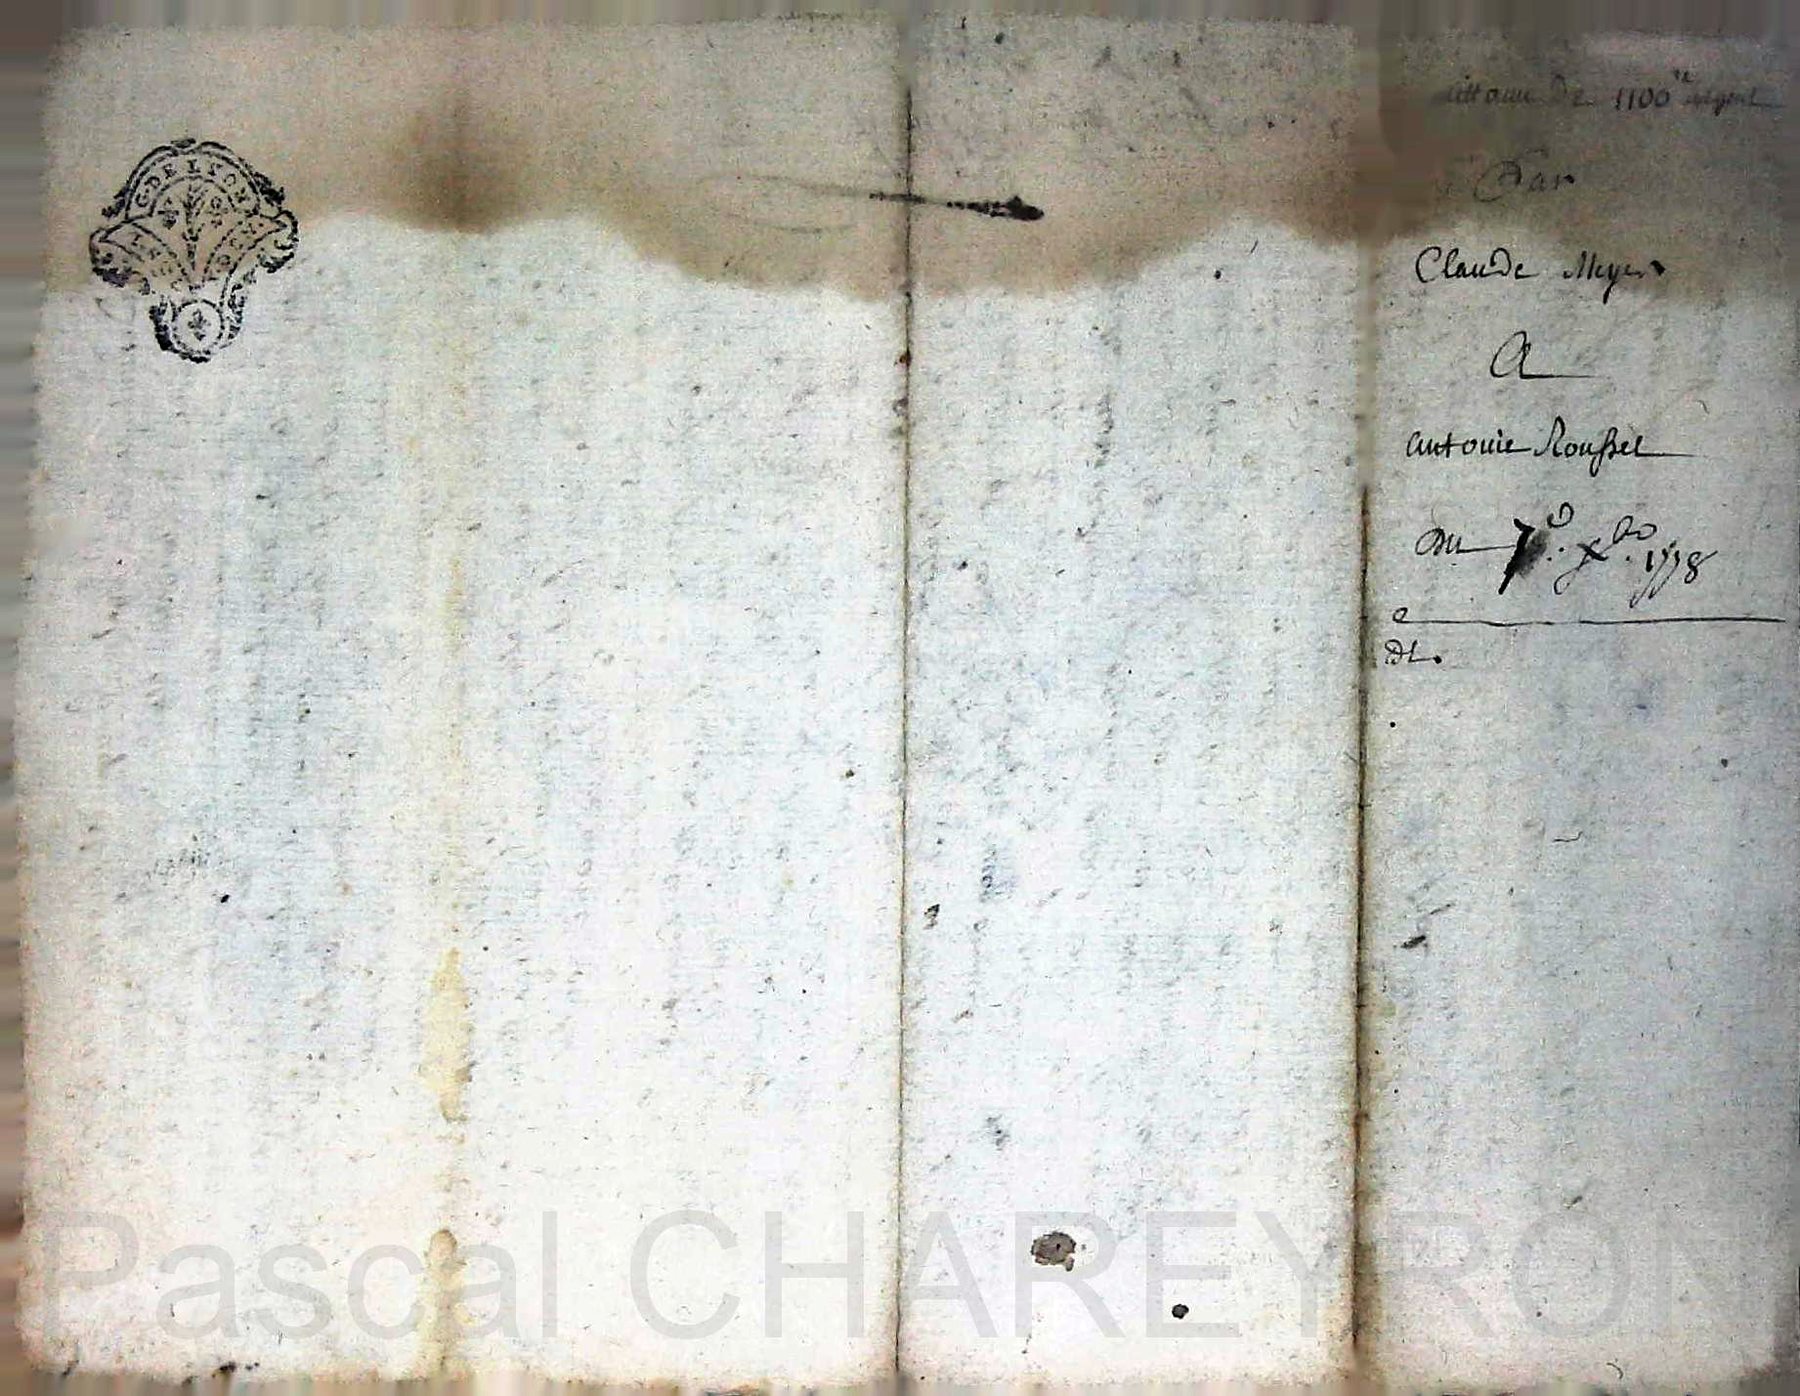 G DE LYON
de 1100 ₶ argent
Par
Claude Meyer
A
antoine Roussel
Du 7e. xbre. 1778
Dt.
Pascal CHAREYRON